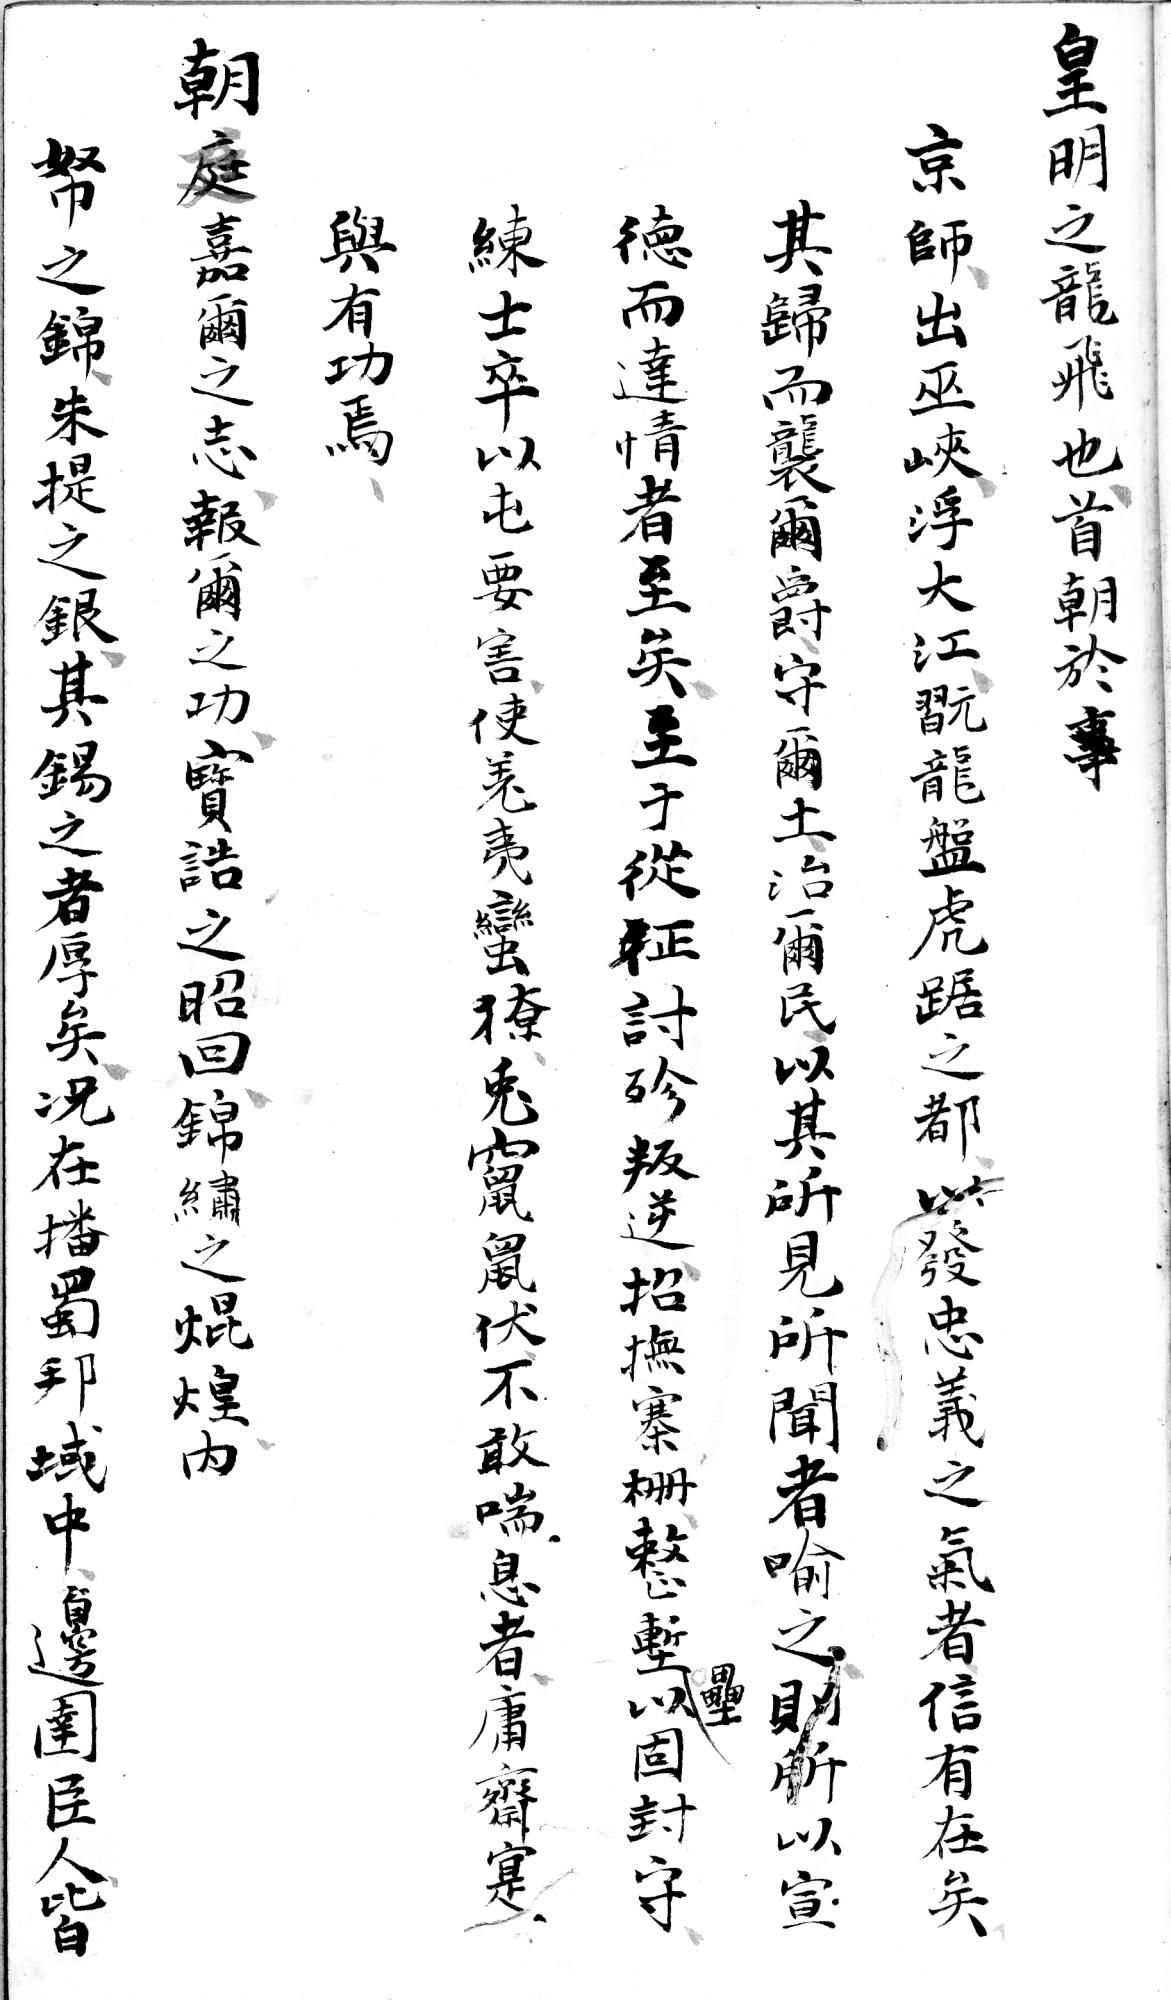 皇明之龍飛也首朝於事
京師出巫峽浮大江翫龍盤虎踞之都以發忠義之氣者信有在矣
其歸而襲爾爵守爾土治爾民以其所見所聞者喻之則所以宣
德而達情者至矣至于從征討殄叛逆招撫寨柵整塹壘以固封守
練士卒以屯要害使羌夷蠻獠兎竄鼠伏不敢喘息者庸齋寔
與有功焉
朝庭嘉爾之志報爾之功寳誥之昭回錦繡之焜煌内
帑之錦朱提之銀其錫之者厚矣况在播蜀邦域中邊圉臣人皆